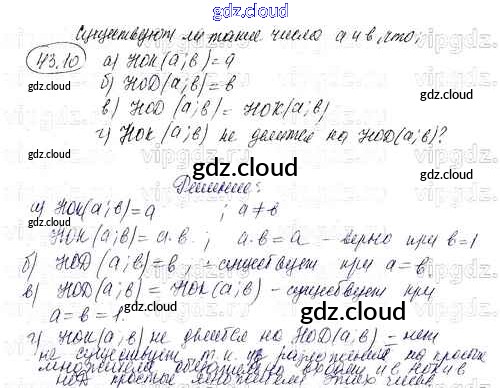 gdz.cloud
Существуют ли такие числа а и в, что:
43.10 а) НОК(а;в)=а
б) НОД(а;в)=в
в) НОД(а;в)=НОК(а;в)
г) НОК(а;в) не делится на НОД(а;в)?
gdz.cloud
gdz.cloud
gdz.cloud
Решение:
а) НОК(а;в)=а ; а≠в
НОК(а;в)=а·в ; а·в=а - верно при в=1
б) НОД(а;в)=в, - существует при а=в
в) НОД(а;в)=НОК(а;в) - существует при
а=в=1.
gdz.cloud
gdz.cloud
г) НОК(а;в) не делится на НОД(а;в) - нет
не существует, т.к. из разложения на простые
множители
НОД простые множители этих чисел